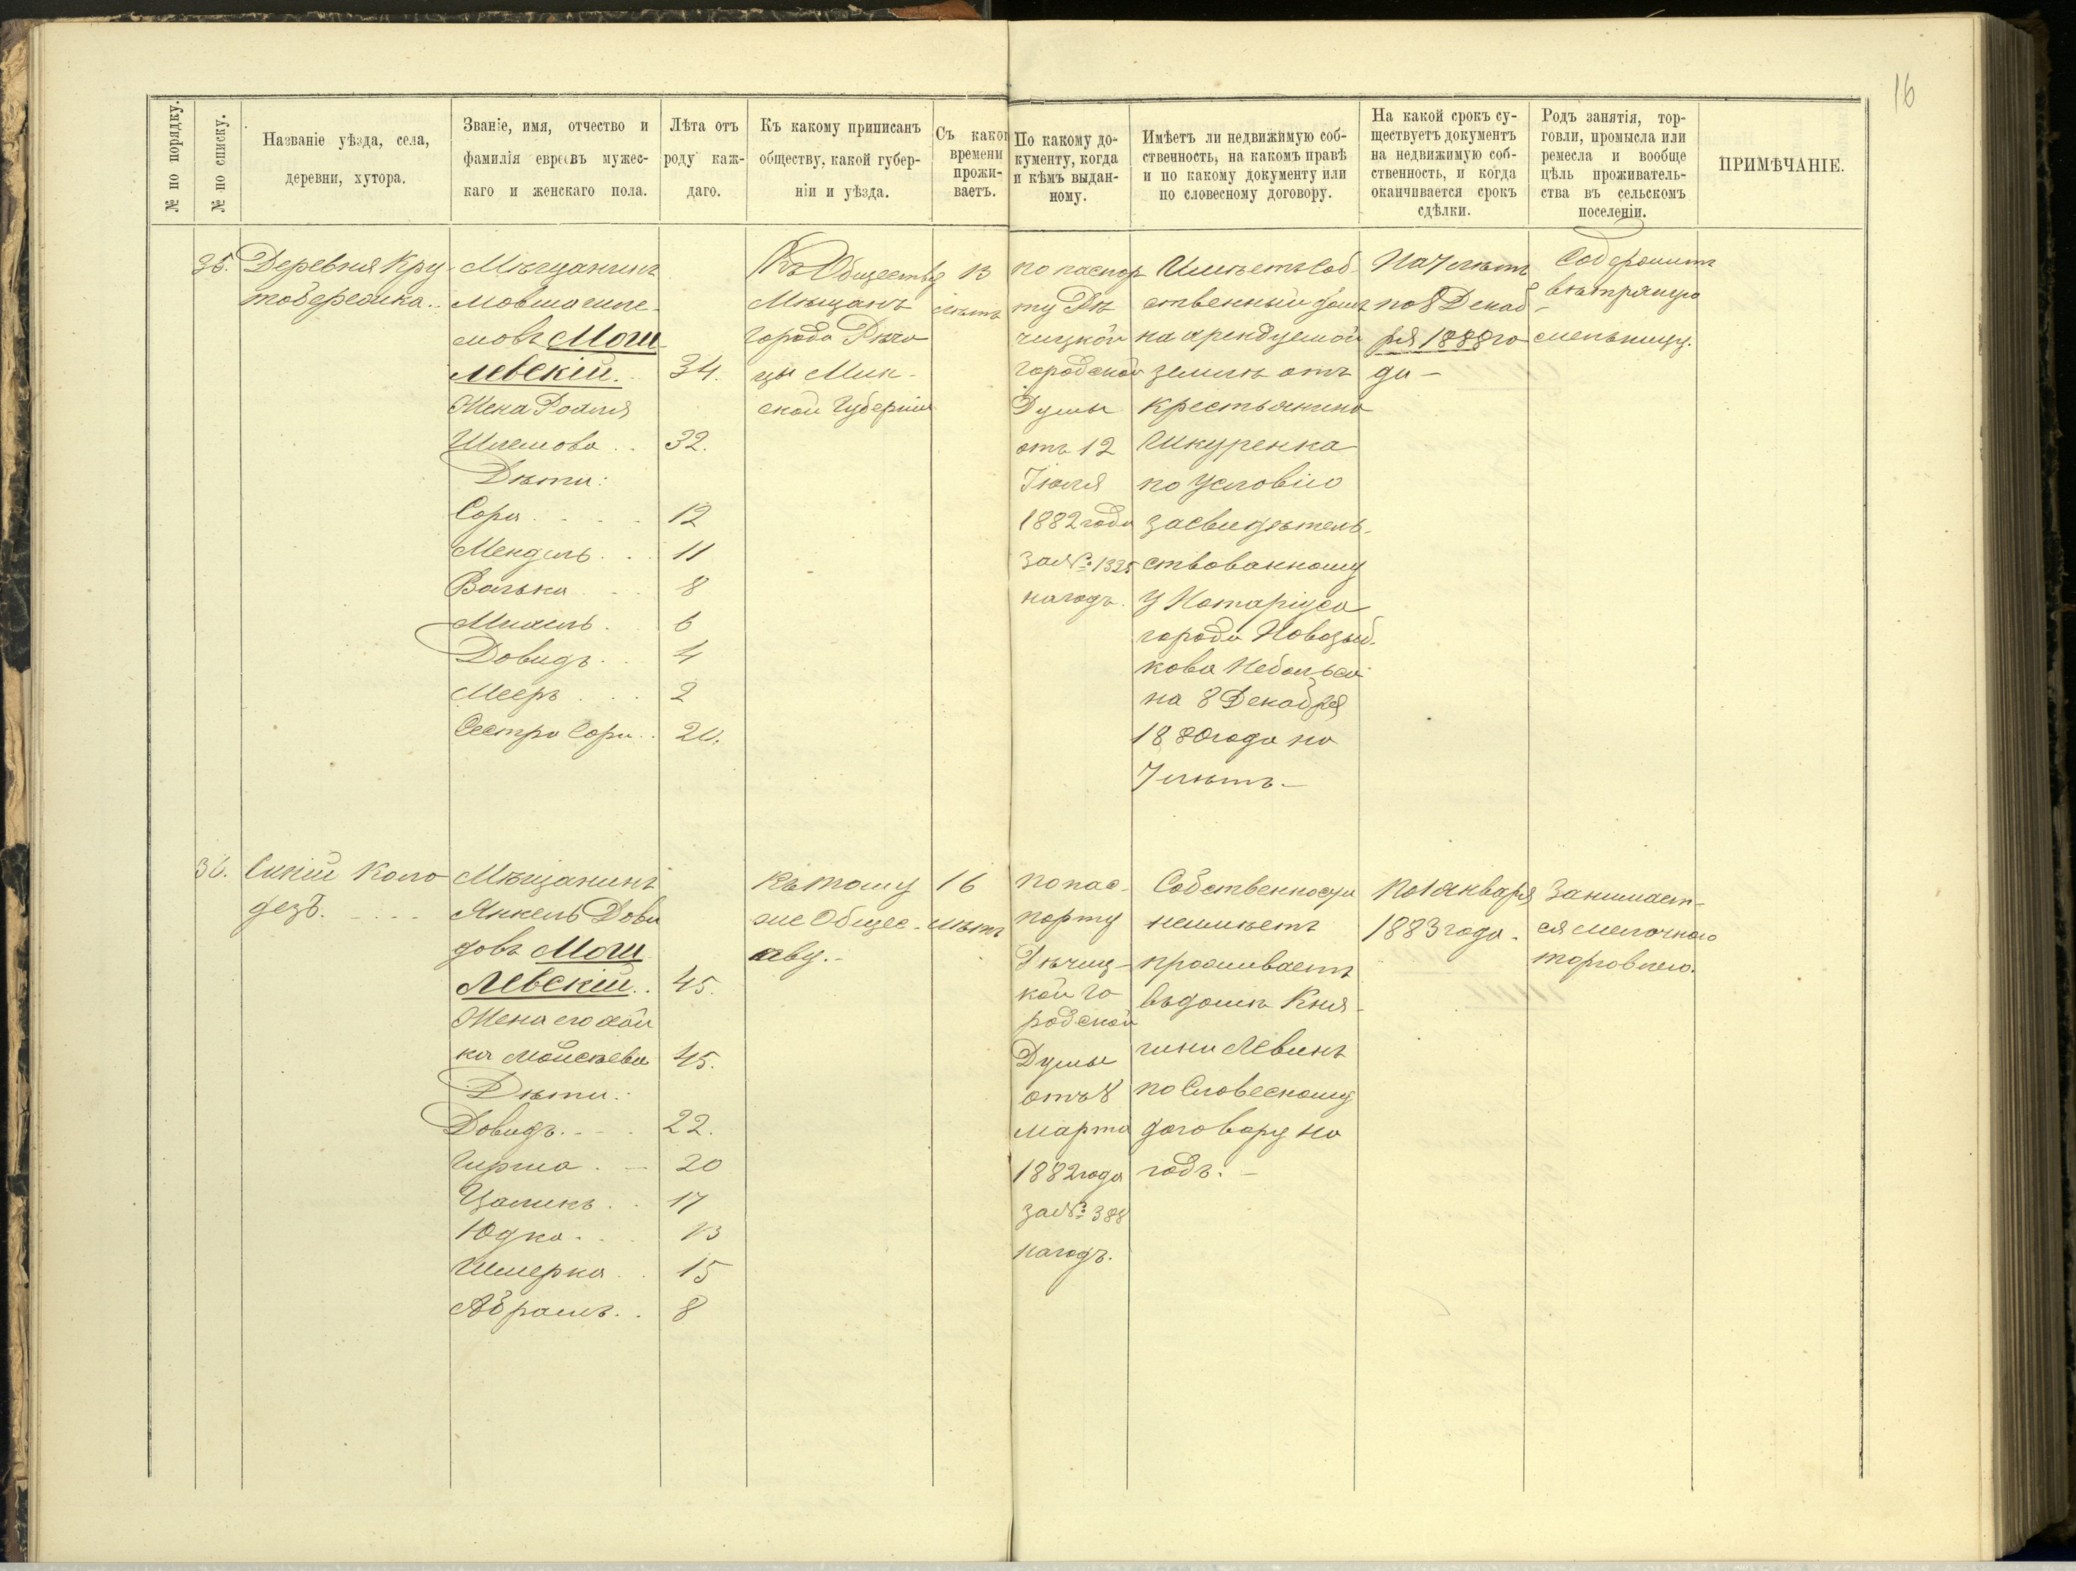 16
№ по порядку.
№ по списку.
Названіе уѣзда, села,
деревни, хутора.
Званіе, имя, отчество и
фамилія евреевъ мужес-
каго и женскаго пола.
Лѣта отъ
роду каж-
даго.
Къ какому приписанъ
обществу, какой губер-
ніи и уѣзда.
Съ како
времени
прожи-
ваетъ.
По какому до-
кументу, когда
и кѣмъ выдан-
ному.
Имѣетъ ли недвижимую соб-
ственность, на какомъ правѣ
и по какому документу или
по словесному договору.
На какой срокъ су-
ществуетъ документъ
на недвижимую соб-
ственность, и когда
оканчивается срокъ
сдѣлки.
Родъ занятія, тор-
говли, промысла или
ремесла и вообще
цѣль проживатель-
ства въ сельскомъ
поселеніи.
ПРИМѢЧАНІЕ.
35.
Деревня Кру
тоберезка.
Мѣщанинъ
Мовша
мовъ Моги
левскій. 34.
Жена
Шлемова 32.
Дѣти:
Сора 12
Мендель 11
Волька 8
6
Довидъ 4
Мееръ 2
Сестра Сора 20.
Къ Обществу
Мѣщанъ
города Рѣчи
цы Мин-
ской Губерніи
13
лѣтъ
по паспор
ту Рѣ
чицкой
Городской
Думы
отъ 12
Іюля
1882 года
за № 1325
на годъ.
Имѣетъ соб-
ственный домъ
на арендуемой
землѣ отъ
крестьянина
Шкуренка
по условію
засвидѣтель-
ствованному
у Нотаріуса
города Новозыб-
кова
на 8 Декабря
1880 года на
7 лѣтъ.—
На 7 лѣтъ
по 8 Декаб
ря 1888 го
да —
Содержитъ
вѣтряную
мельницу.
36.
Синій Коло
дезь.
Мѣщанинъ
Янкель Дови
довъ Моги
левскій. 45.
Жена его Хай
ка Мойсѣева 45.
Дѣти:
Довидъ. 22.
Гирша 20
Цаликъ 17
Юдка 13
Шмерка 15
Абрамъ 8
Къ тому
же Общес-
тву.-
16
лѣтъ
по пас-
порту
Рѣчиц-
кой Го
родской
Думы
отъ 8
марта
1882 года
за № 388
на годъ.
Собственности
неимѣетъ
проживаетъ
въ домѣ Кня-
гини Левинъ
по Словесному
договору на
годъ.—
По 1 Января
1883 года.
Занимает-
ся мелочною
торговлею.